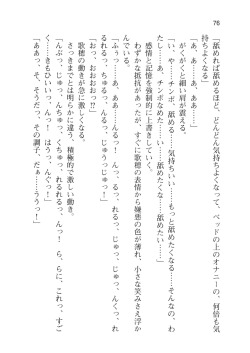 76
「舐めれば舐めるほど、どんどん気持ちよくなって、ベッドの上のオナニーの、何倍も気
持ちよくなる」
「あ、あ……あ……」
がくがくと細い肩が震える。
「いや、や……チンポ、なんか、舐める……気持ちいい……もっと舐めたくなる……そんなの、わ
たし……あ、チンポなめた……い……舐めたくな……舐めたい……」
感情と記憶を強制的に上書きしていく。
わずかな抵抗があったが、すぐに歌穂の表情から嫌悪の色が薄れ、小さな笑みさえ浮か
んでいる。
「ふぅ……あ、あぁ……んるっ、れるっ、るっ、じゅっ、じゅっ、んくっ、
るれるっ、ちゅるっ、んるっ、じゅうっ……」
「おっ、おおおおっ⁉」
歌穂の動きが急に激しくなる。
さっきまでとは明らかに違う、積極的で激しい動き。
「んぶっ、じゅっ、んちゅっ、くちゅっ、れるっ、じゅっ、じゅっ、これっ、すご
く……きもひいいっ、んっ！　はうっ、んぐっ！」
「ああっ、そ、そうだっ、その調子、だぁ……ううっ！」